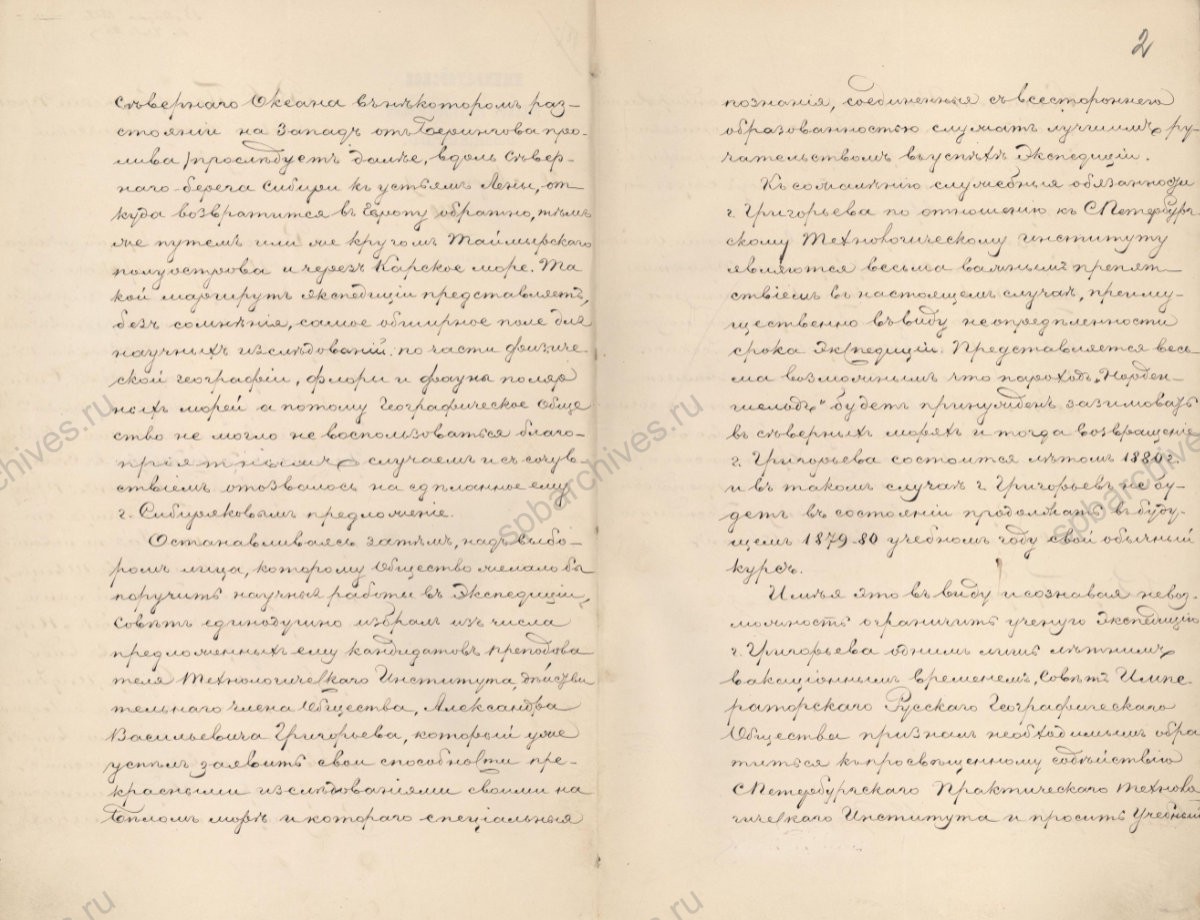 Сѣвернаго Океана въ нѣкоторомъ раз-
стояніи на Западъ отъ Берингова про-
лива, прослѣдуетъ далѣе, вдоль Сѣвер-
наго берега Сибири къ устьямъ Лены, от
куда возвратится въ Европу обратно, тѣмъ
же путемъ или же кругомъ Таймырскаго
полуострова и черезъ Карское море. Та
кой маршрутъ экспедиціи представляетъ,
безъ сомнѣнія, самое обширное поле для
научныхъ изслѣдованій по части физиче
ской географіи, флоры и фауны поляр
ныхъ морей а потому Географическое Обще
ство не могло не воспользоваться благо-
пріятнымъ случаемъ и съ сочув
ствіемъ отозвалось на сдѣланное ему
г. Сибиряковымъ предложеніе.
Останавливаясь затѣмъ, надъ выбо-
ромъ лица, которому Общество желало бы
поручить научныя работы въ Экспедиціи,
Совѣтъ единодушно избралъ изъ числа
предложенныхъ ему кандидатовъ преподова
теля Технологическаго Института, дѣйстви
тельнаго члена Общества, Александра
Васильевича Григорьева, который уже
успѣлъ заявить свои способности пре-
красными изслѣдованіями своими на
Бѣломъ морѣ и котораго спеціальныя
2
познанія, соединенныя съ всестороннею
образованностью служатъ лучшимъ ру-
чательствомъ въ успѣхѣ Экспедиціи.
Къ сожалѣнію служебныя обязанности
г. Григорьева по отношенію къ С Петербург
скому Технологическому институту
являются весьма важнымъ препят-
ствіемъ въ настоящемъ случаѣ, преиму-
щественно въ виду неопредѣленности
срока Экспедиціи. Представляется весь-
ма возможнымъ что пароходъ „Норден-
шельдъ“ будетъ принужденъ зазимовать
въ сѣверныхъ моряхъ и тогда возвращеніе
г. Григорьева состоится лѣтомъ 1880 г.
и въ такомъ случаѣ г. Григорьевъ не бу-
детъ въ состояніи продолжать въ буду-
щемъ 1879-80 учебномъ году свой обычный
курсъ.
Имѣя это въ виду и сознавая невоз-
можность ограничить ученую Экспедицію
г. Григорьева однимъ лишь лѣтнимъ
вакаціоннымъ временемъ, Совѣтъ Импе-
раторскаго Русскаго Географическаго
Общества призналъ необходимымъ обра
титься къ просвѣщенному содѣйствію
С Петербургскаго Практическаго Техноло
гическаго Института и просить Учебный
spbarchives.ru
spbarchives.ru